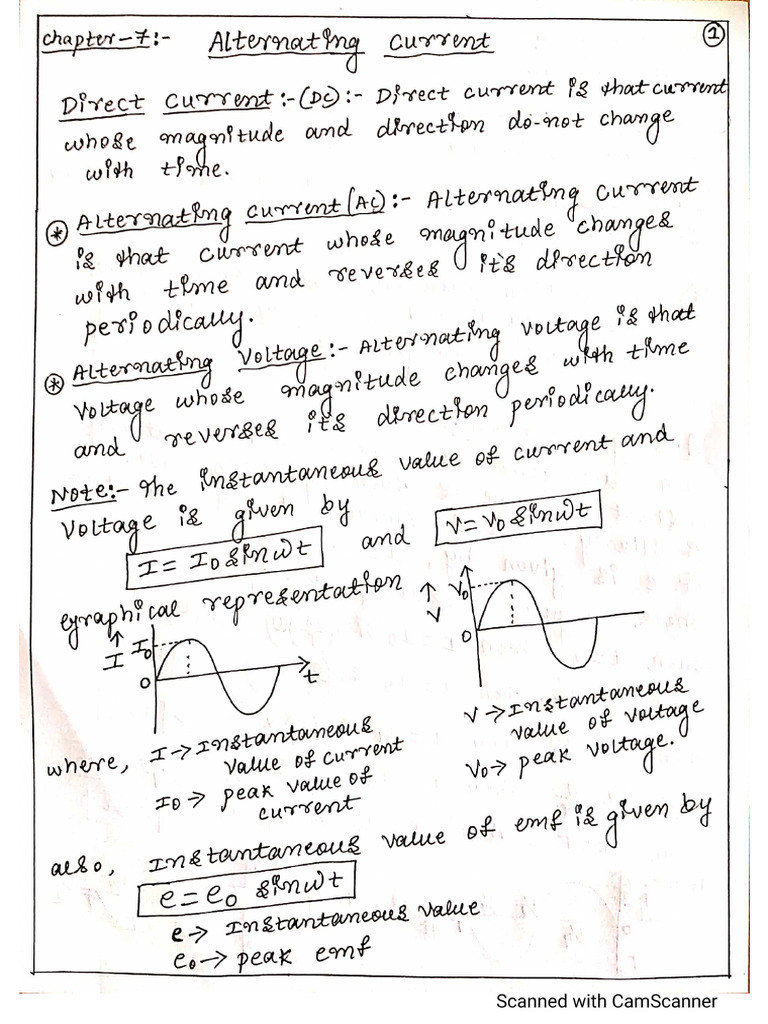 Chapter-7:- Alternating Current 1
Direct Current:-(DC):- Direct current is that current
whose magnitude and direction do-not change
with time.
* Alternating Current(AC):- Alternating current
is that current whose magnitude changes
with time and reverses it's direction
periodically.
* Alternating Voltage:- Alternating voltage is that
voltage whose magnitude changes with time
and reverses its direction periodically.
Note:- The instantaneous value of current and
Voltage is given by
I = I0 sinωt and V = V0 sinωt
graphical representation
↑ I I0 0 t
↑ V V0 0
where, I → Instantaneous
value of current
I0 → peak value of
current
V → Instantaneous
value of voltage
V0 → peak voltage.
also, Instantaneous value of emf is given by
e = e0 sinωt
e → Instantaneous value
e0 → peak emf
Scanned with CamScanner